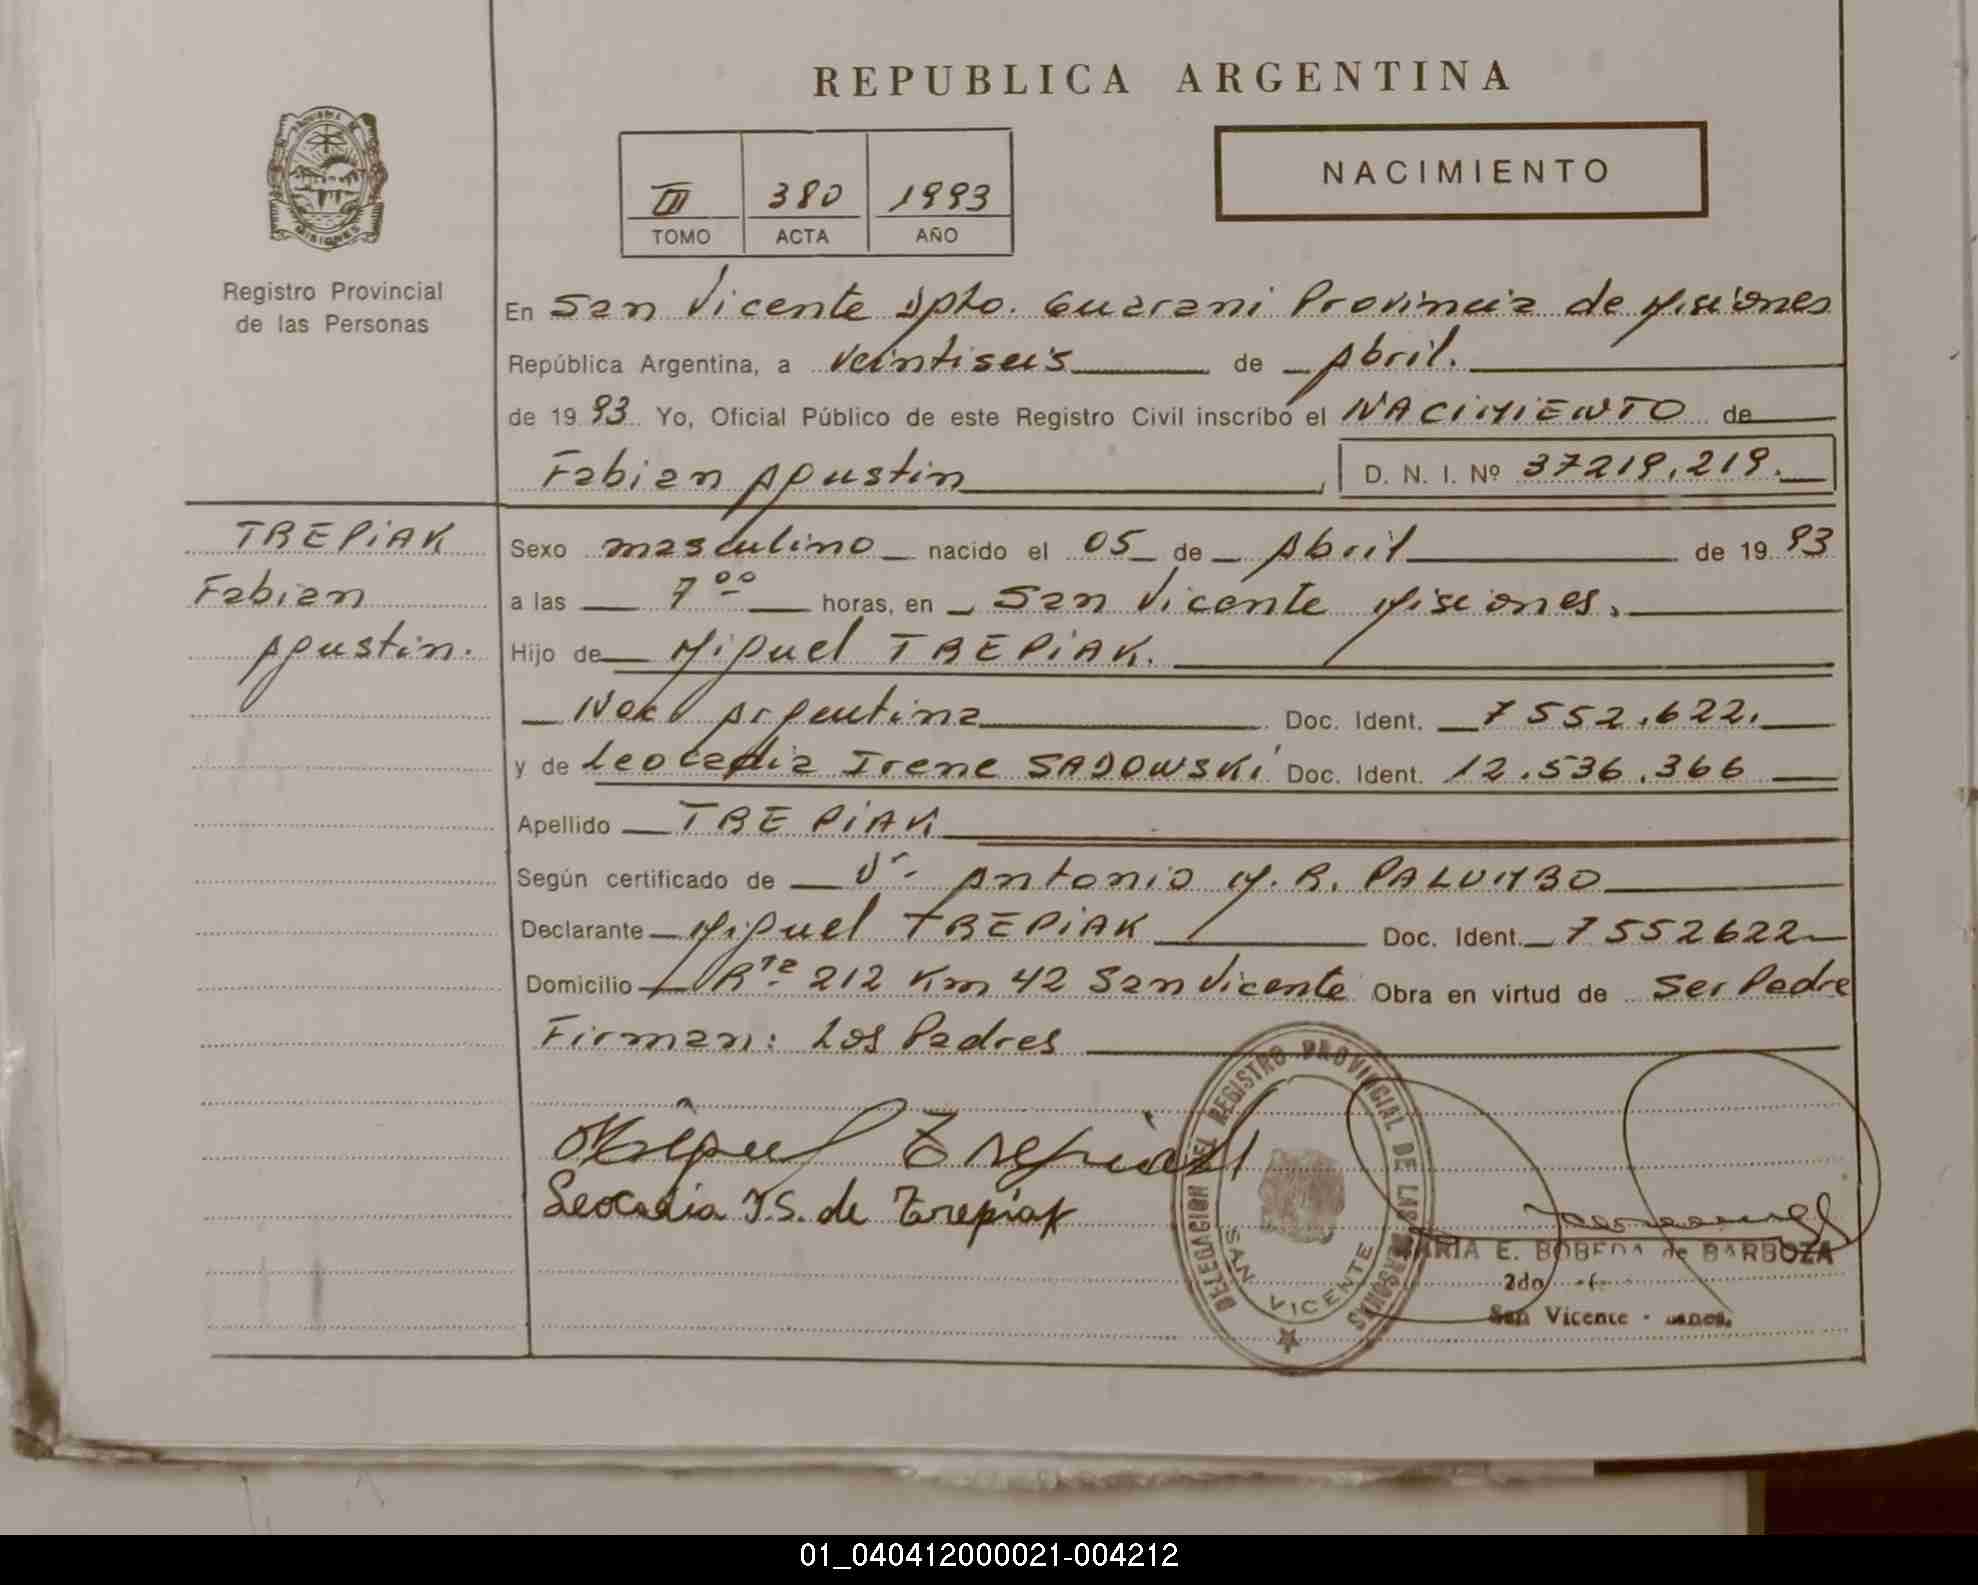 REPUBLICA ARGENTINA
MISIONES
Registro Provincial
de las Personas
III 380 1993
TOMO ACTA AÑO
NACIMIENTO
En San Vicente Dpto. Guarani Provincia de Misiones
República Argentina, a veintiseis de Abril.
de 19 93 Yo, Oficial Público de este Registro Civil inscribo el NACIMIENTO de
Fabian Agustin D. N. I. Nº 37219.219.
TREPIAK
Fabian
Agustin.
Sexo masculino nacido el 05 de Abril de 19 93
a las 7 00 horas, en San Vicente Misiones.
Hijo de Miguel TREPIAK.
Nac Argentina Doc. Ident. 7552.622.
y de Leocadia Irene SADOWSKI Doc. Ident. 12.536.366
Apellido TREPIAK
Según certificado de Dr. Antonio M. R. PALUMBO
Declarante Miguel TREPIAK Doc. Ident. 7552622
Domicilio Rta 212 Km 42 San Vicente Obra en virtud de Ser Padre
Firman: Los Padres
Miguel Trepiak
Leocadia I.S. de Trepiak
DELEGACION DEL REGISTRO PROVINCIAL DE LAS PERSONAS
SAN VICENTE
MARIA E. BOBEDA de BARBOZA
2do
San Vicente -
01_040412000021-004212